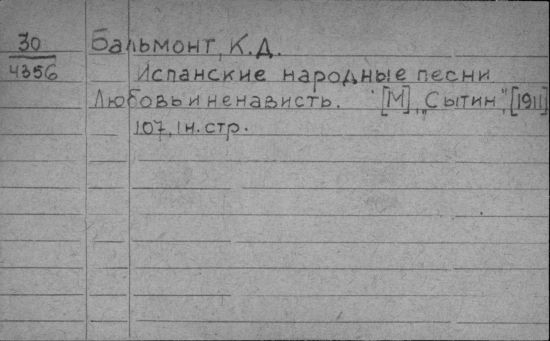 30 Бальмонт, К.Д.
4356 Испанские народные песни
Любовь и ненависть. [М], "Сытин", [1911]
107, 1н. стр.